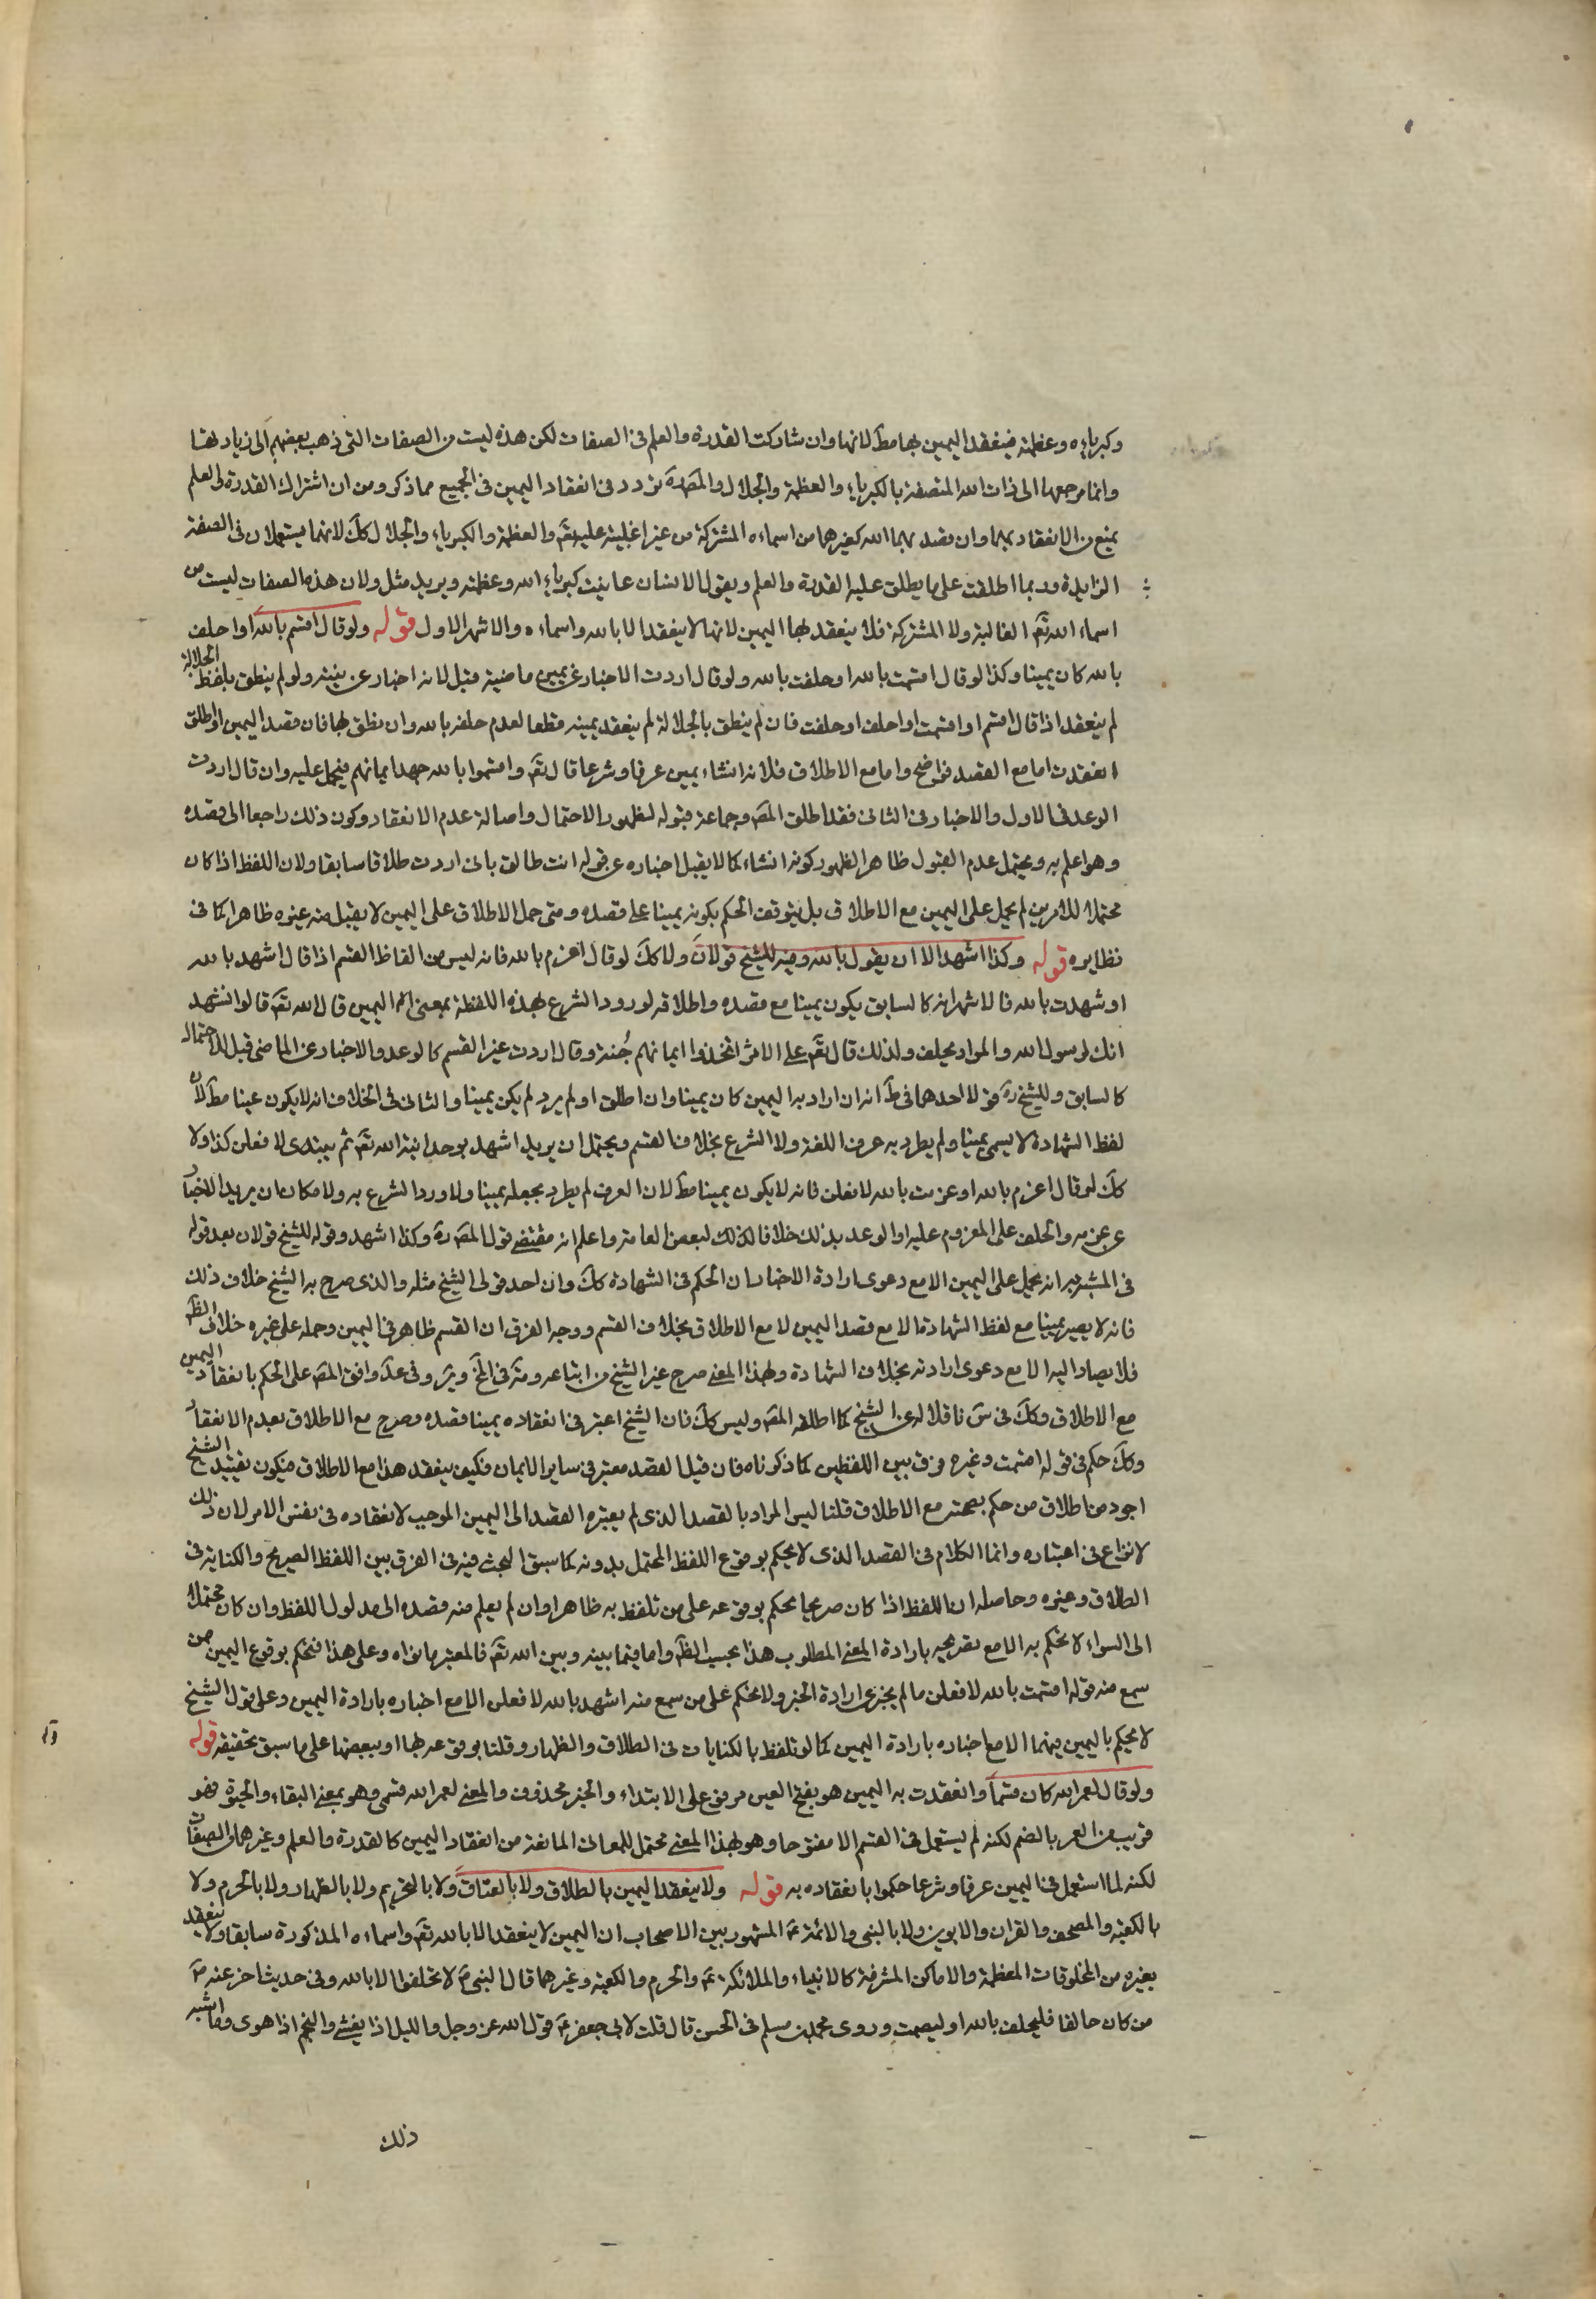 وكبرياءه وعظمته فينعقد اليمين بها مطَ لانها وان شاركت القدرة والعلم في الصفات لكن هذه ليست من الصفات التي ذهب بعضهم الى زيادتها
وانما مرجعها الى ذات الله المتصفة بالكبرياء والعظمة والجلال والمصَ رهَ تردد في انعقاد اليمين في الجميع مما ذكر ومن ان اشتراك القدرة والعلم
يمنع من الانعقاد بهما وان قصد بهما الله كغيرهما من اسماءه المشتركة من غير اغلبية عليه تعَ والعظمة والكبرياء والجلال كلَ لانها يستعملان في الصفة
الزايدة وربما اطلقت على ما يطلق عليه القدرة والعلم ويقول الانسان عاينت كبرياء الله وعظمته ويريد مثل ولان هذه الصفات ليست من
اسماء الله تعَ الغالبة ولا المشتركة فلا ينعقد بها اليمين لانها لا ينعقد الا بالله واسماءه والاشهر الاول قوله ولو قال اقسم بالله او احلف
بالله كان يمينا وكذا لو قال اقسمت بالله او حلفت بالله ولو قال اردت الاخبار عن يمين ماضية قبل لانه اخبار عن نيته ولو لم ينطق بلفظ الجلالة
لم ينعقد اذا قال اقسم او اقسمت او احلف او حلفت فان لم ينطق بالجلالة لم ينعقد يمينه قطعا لعدم حلفه بالله وان نطق بها فان قصد اليمين او اطلق
انعقدت اما مع القصد فواضح واما مع الاطلاق فلانه انشاء يمين عرفا وشرعا قال تعَ واقسموا بالله جهد ايمانهم فيحمل عليه وان قال اردت
الوعد في الاول والاخبار في الثاني فقد اطلق المصَ وجماعة قبوله لظهور الاحتمال واصالة عدم الانعقاد وكون ذلك راجعا الى قصده
وهو اعلم به ويحتمل عدم القبول ظاهرا لظهور كونه انشاء كما لا يقبل اخباره عن قوله انت طالق باني اردت طلاقا سابقا ولان اللفظ اذا كان
محتملا للامرين لم يحمل على اليمين مع الاطلاق بل يتوقف الحكم بكونه يمينا على قصده ومتى حمل الاطلاق على اليمين لا يقبل منه غيره ظاهرا كما في
نظايره قوله وكذا اشهد الا ان يقول بالله وفيه للشيخ قولان ولا كلَ لو قال اعزم بالله فانه ليس من الفاظ القسم اذا قال اشهد بالله
او شهدت بالله فالاشهر انه كالسابق يكون يمينا مع قصده واطلاقه لورود الشرع بهذه اللفظة بمعنى اليمين قال الله تعَ قالوا نشهد
انك لرسول الله والمراد نحلف ولذلك قال تعَ على الاثر اتخذوا ايمانهم جُنة وقال اردت غير القسم كالوعد والاخبار عن الماضي قبل لاحتماله
كالسابق وللشيخ رهَ قولا احدهما في طَ انه ان اراد به اليمين كان يمينا وان اطلق او لم يرد لم يكن يمينا والثاني في الخلاف انه لا يكون يمينا مطَ لان
لفظ الشهادة لا يسمى يمينا ولم يطرد به عرف اللغة ولا الشرع بخلاف القسم ويحتمل ان يريد اشهد بوحدانية الله تعَ ثم يبتدئ لا فعلن كذا ولا
كلَ لو قال اعزم بالله او عزمت بالله لافعلن فانه لا يكون يمينا مطَ لان العرف لم يطرد بجعله يمينا ولا ورد الشرع به ولامكان ان يريد الاخبار
عن عزمه والحلف على المعزوم عليه او الوعد بذلك خلافا لبعض العامة واعلم ان مقتضى قول المصَ رهَ وكذا اشهد وقوله للشيخ قولان بعد قوله
في المشبه به انه يحمل على اليمين الا مع دعوى ارادة الاخبار ان الحكم في الشهادة كلَ وان احد قولي الشيخ مثله والذي صرح به الشيخ خلاف ذلك
فانه لا يصير يمينا مع لفظ الشهادة الا مع قصد اليمين لا مع الاطلاق بخلاف القسم ووجه الفرق ان القسم ظاهر في اليمين وحمله على غيره خلاف الظَ
فلا يصار اليه الا مع دعوى ارادته بخلاف الشهادة وبهذا المعنى صرح غير الشيخ من اتباعه ومنه في وفي عدَ وافق المصَ على الحكم بانعقاد اليمين
مع الاطلاق وكلَ في سَ ناقلا له عن الشيخ كما اطلقه المصَ وليس كلَ فان الشيخ اعتبر في انعقاده يمينا قصده وصرح مع الاطلاق بعدم الانعقاد
وكلَ حكم في قوله اقسمت وغيره فرق بين اللفظين كما ذكرناه فان قيل القصد معتبر في ساير الايمان فكيف ينعقد هذا مع الاطلاق فيكون تقييد الشيخ
اجود من اطلاق من حكم بصحته مع الاطلاق قلنا ليس المراد بالقصد الذي لم يعتبره القصد الى اليمين الموجب لانعقاده في نفس الامر لان ذلك
لا نزاع في اعتباره وانما الكلام في القصد الذي لا يحكم بوقوع اللفظ المحتمل بدونه كما سبق البحث فيه في الفرق بين اللفظ الصريح والكناية في
الطلاق وغيره وحاصله ان اللفظ اذا كان صريحا يحكم بوقوعه على من تلفظ به ظاهرا وان لم يعلم منه قصده الى مدلول اللفظ وان كان محتملا
الى السواء لا نحكم به الا مع تصريحه بارادة المعنى المطلوب هذا بحسب الظَ واما فيما بينه وبين الله تعَ فالمعتبر ما نواه وعلى هذا فنحكم بوقوع اليمين من
سمع منه قوله اقسمت بالله لافعلن ما لم يخبر عن ارادة الخبر ولا نحكم على من سمع منه اشهد بالله لافعلن الا مع اخباره بارادة اليمين وعلى قول الشيخ
لا نحكم باليمين فيهما الا مع اخباره بارادة اليمين كما لو تلفظ بالكنايات في الطلاق والظهار وقلنا بوقوعه بها او ببعضها على ما سبق تحقيقه قوله
ولو قال لعمر الله كان قسما وانعقدت به اليمين هو بفتح العين مرفوع على الابتداء والخبر محذوف والمعنى لعمر الله قسمي وهو بمعنى البقاء والحيوة فهو
قريب من العمر بالضم لكنه لم يستعمل في القسم الا مفتوحا وهو بهذا المعنى محتمل للمعاني المانعة من انعقاد اليمين كالقدرة والعلم وغيرهما من الصفات
لكنه لما استعمل في اليمين عرفا وشرعا حكموا بانعقاده به قوله ولا ينعقد اليمين بالطلاق ولا بالعتاق ولا بالتحريم ولا بالظهار ولا بالحرم ولا
بالكعبة والمصحف والقران والابوين ولا بالنبي والائمة عَ المشهور بين الاصحاب ان اليمين لا ينعقد الا بالله تعَ واسماءه المذكورة سابقا ولا ينعقد
بغيره من المخلوقات المعظمة والاماكن المشرفة كالانبياء والملائكة عَ والحرم والكعبة وغيرهما قال النبي صَ لا تحلفوا الا بالله وفي حديث اخر عنه صَ
من كان حالفا فليحلف بالله او ليصمت وروى محمد بن مسلم في الحسن قال قلت لابي جعفر عَ قول الله عز وجل والليل اذا يغشى والنجم اذا هوى وما اشبه
ذلك